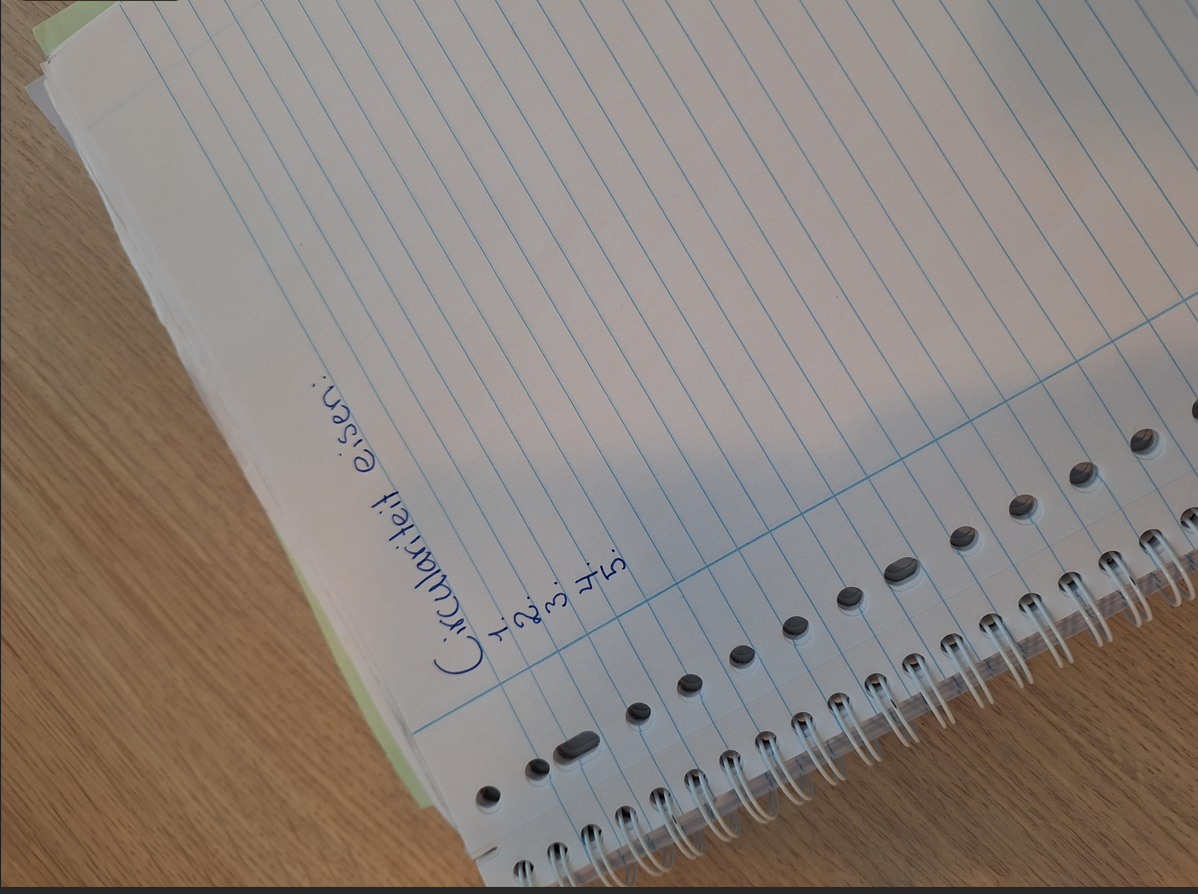 Circulariteit eisen:
1.
2.
3.
4.
5.